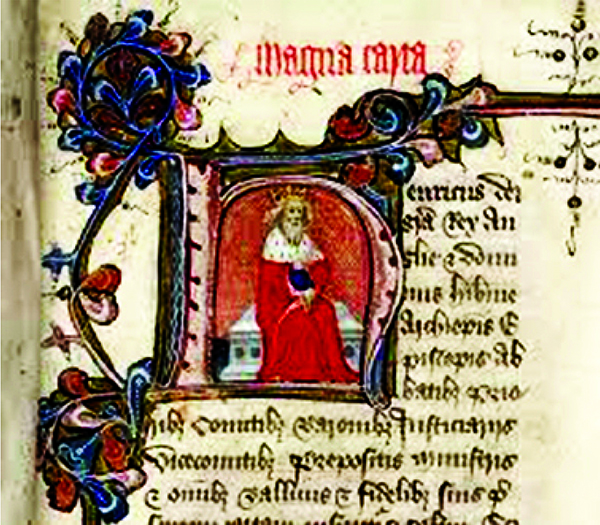 magna carta
Henricus dei
gra Rex An
glie & domi
nus hibnie
Archiepis E
piscopis Ab
batibꝫ Prio
ribꝫ Comitibꝫ Baronibꝫ Justiciariis
Vicecomitibꝫ Prepositis ministris
& omibꝫ Ballivis & fidelibꝫ suis